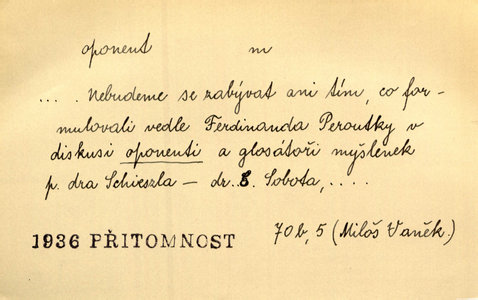 oponent m
... . Nebudeme se zabývat ani tím, co for-
mulovali vedle Ferdinanda Peroutky v
diskusi oponenti a glosátoři myšlenek
p. dra Schieszla – dr. E. Sobota, ....
1936 PŘITOMNOST 70b, 5 (Miloš Vaněk.)